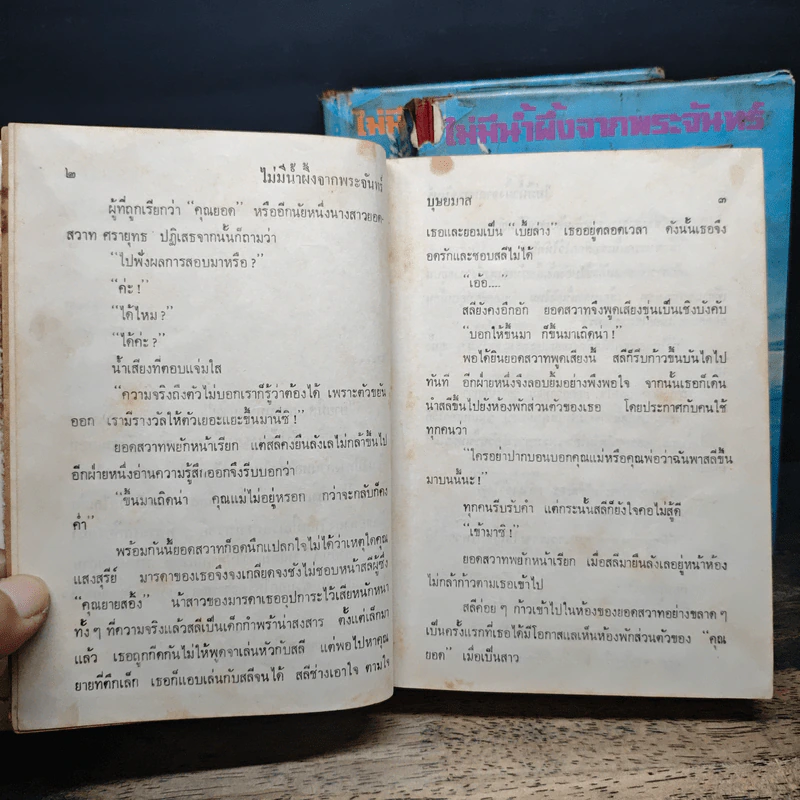 ไม่มี
ไม่มีน้ำผึ้งจากพระจันทร์
๒ ไม่มีน้ำผึ้งจากพระจันทร์
ผู้ที่ถูกเรียกว่า “คุณยอด” หรืออีกนัยหนึ่งนางสาวยอด-
สวาท ศรายุทธ ปฏิเสธจากนั้นก็ถามว่า
“ไปฟังผลการสอบมาหรือ ?”
“ค่ะ !”
“ได้ไหม ?”
“ได้ค่ะ ?”
น้ำเสียงที่ตอบแจ่มใส
“ความจริงถึงตัวไม่บอกเราก็รู้ว่าต้องได้ เพราะตัวขยัน
ออก เรามีรางวัลให้ตัวเยอะแยะขึ้นมานี่ซิ !”
ยอดสวาทพยักหน้าเรียก แต่สลีคงยืนลังเลไม่กล้าขึ้นไป
อีกฝ่ายหนึ่งอ่านความรู้สึกออกจึงรีบบอกว่า
“ขึ้นมาเถิดน่า คุณแม่ไม่อยู่หรอก กว่าจะกลับก็คง
ค่ำ”
พร้อมกันนี้ยอดสวาทก็อดนึกแปลกใจไม่ได้ว่าเหตุใดคุณ
แสงสุรีย์ มารดาของเธอจึงจงเกลียดจงชังไม่ชอบหน้าสลีผู้ซึ่ง
“คุณยายสอิ้ง” น้าสาวของมารดาเธออุปการะไว้เสียหนักหนา
ทั้ง ๆ ที่ความจริงแล้วสลีเป็นเด็กกำพร้าน่าสงสาร ตั้งแต่เล็กมา
แล้ว เธอถูกกีดกันไม่ให้พูดจาเล่นหัวกับสลี แต่พอไปหาคุณ
ยายที่ตึกเล็ก เธอก็แอบเล่นกับสลีจนได้ สลีช่างเอาใจ ตามใจ
บุษยมาส ๓
เธอและยอมเป็น “เบี้ยล่าง” เธออยู่ตลอดเวลา ดังนั้นเธอจึง
อดรักและชอบสลีไม่ได้
“เอ้อ....”
สลียังคงอีกอัก ยอดสวาทจึงพูดเสียงขุ่นเป็นเชิงบังคับ
“บอกให้ขึ้นมา ก็ขึ้นมาเถิดน่า !”
พอได้ยินยอดสวาทพูดเสียงนี้ สลีก็รีบก้าวขึ้นบันไดไป
ทันที อีกฝ่ายหนึ่งจึงลอบยิ้มอย่างพึงพอใจ จากนั้นเธอก็เดิน
นำสลีขึ้นไปยังห้องพักส่วนตัวของเธอ โดยประกาศกับคนใช้
ทุกคนว่า
“ใครอย่าปากบอนบอกคุณแม่หรือคุณพ่อว่าฉันพาสลีขึ้น
มาบนนี้นะ !”
ทุกคนรีบรับคำ แต่กระนั้นสลีก็ยังใจคอไม่สู้ดี
“เข้ามาซิ !”
ยอดสวาทพยักหน้าเรียก เมื่อสลีมายืนลังเลอยู่หน้าห้อง
ไม่กล้าก้าวตามเธอเข้าไป
สลีค่อย ๆ ก้าวเข้าไปในห้องของยอดสวาทอย่างขลาด ๆ
เป็นครั้งแรกที่เธอได้มีโอกาสแลเห็นห้องพักส่วนตัวของ “คุณ
ยอด” เมื่อเป็นสาว